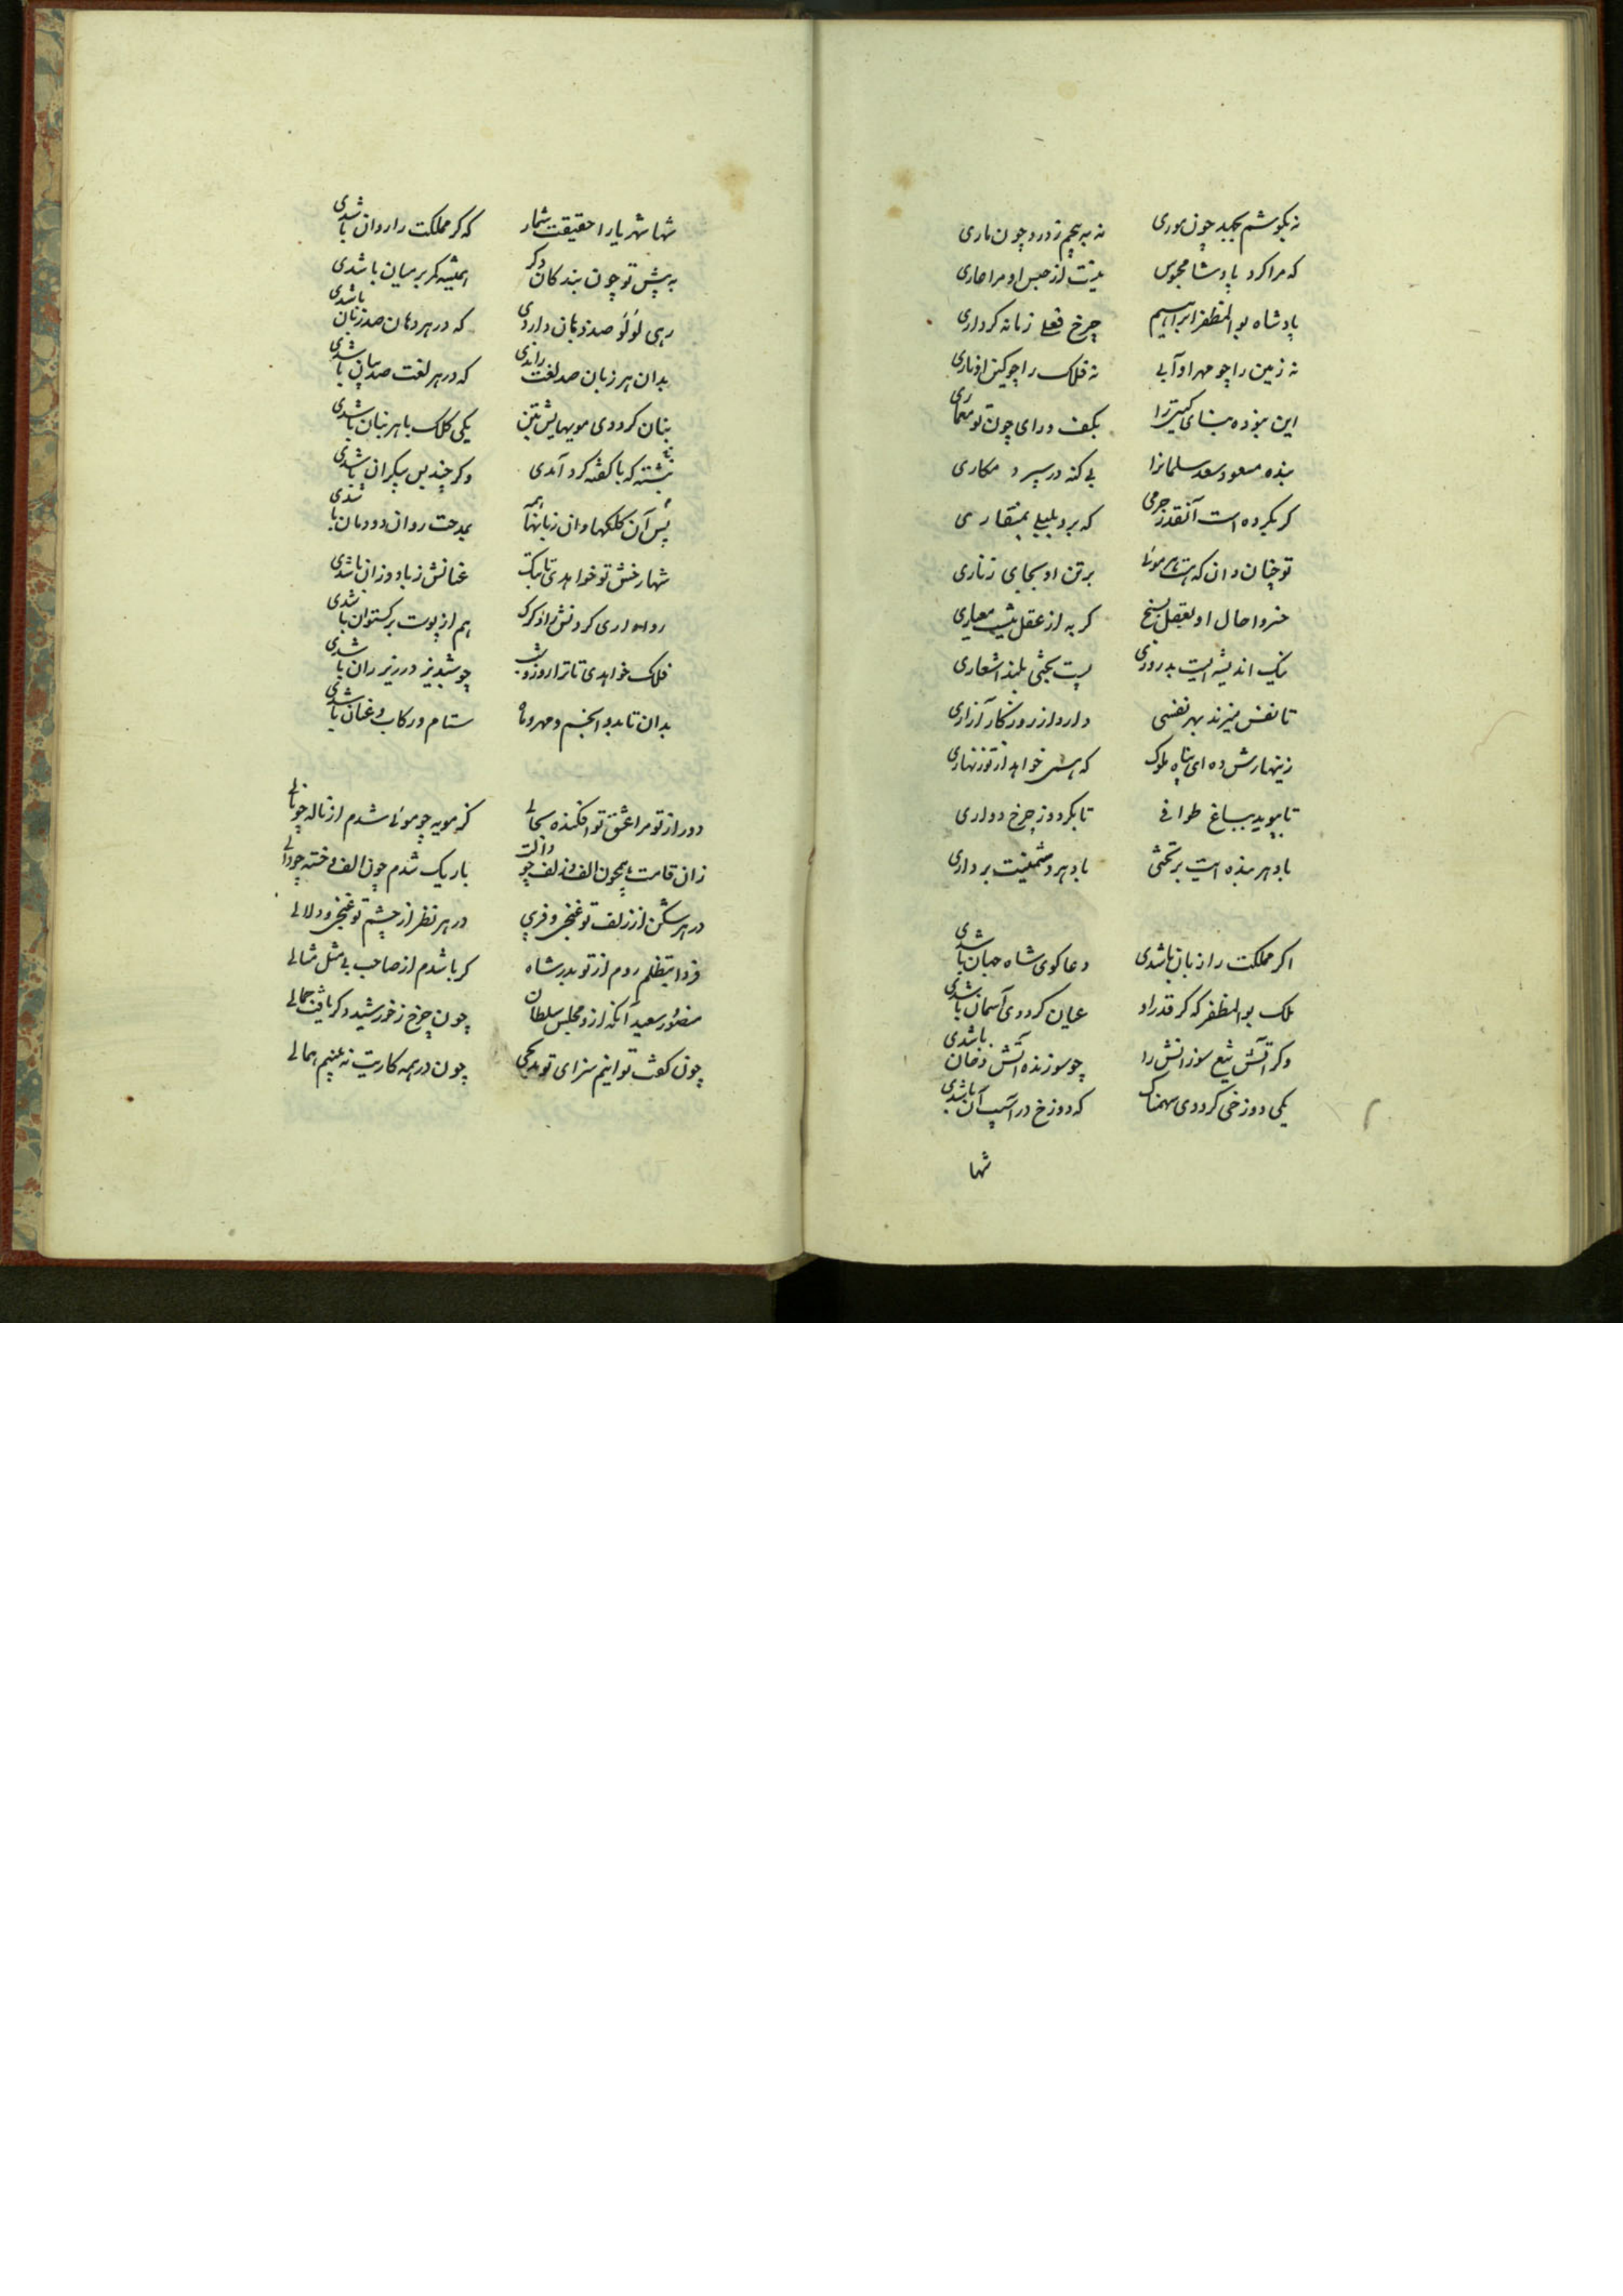 نه بکوشم بجهد چون موری نه بپیچم ز درد چون ماری
که مرا کرد پادشا محبوس نیست از حبس او مرا عاری
پادشاه بوالمظفر ابراهیم چرخ فعلی زمانه کرداری
نه زمین را چو مهر او آبی نه فلک را چو کین او ناری
این نبوده بنای کیتی را بکف و رای چون تو معماری
بنده مسعود سعد سلمانرا بی کنه در سپرد مکاری
که نکرده است آنقدر جرمی که برد بلبلی بمنقاری
تو چنان دان که هست هر موئی برتن او بجای زناری
خسروا حال او بعقل بسنج که به از عقل نیست معیاری
نیک اندیشه ایست بد روزی پست بختی بلند اشعاری
تا نفس میزند بهر نفسی دارد از روزکار آزاری
زینهارش ده ای پناه ملوک که همی خواهد از تو زنهاری
تا بپوید بباغ طوافی تا بکردد ز چرخ دواری
باد هر بنده ایت بر تختی باد هر دشمنیت برداری
اکر مملکت را زبان باشدی دعا کوی شاه جهان باشدی
ملک بوالمظفر که کر قدر او عیان کرددی آسمان باشدی
وکر آتش تیغ سوزانش را چو سوزنده آتش دخان باشدی
یکی دوزخی کرددی سهمناک که دوزخ در آسیب آن باشدی
شها
شها شهریارا حقیقت شمار که کر مملکت را روان باشدی
به پیش تو چون بندکان دکر همیشه کمر بر میان باشدی
رهی لؤلؤ صد دهان داردی که در هر دهان صد زبان باشدی
بدان هر زبان صد لغت راندی که در هر لغت صد بیان باشدی
بنان کرددی مویهایش بتن یکی کلک با هر بنان باشدی
نبشته که با کفته کرد آمدی وکر چند بس بیکران باشدی
پس آن کلکها وان زبانها همه بمدحت روان و دوان باشدی
شها رخش تو خواهدی تا بتک عنانش ز باد وزان باشدی
روا داری کردنش زاد کرک هم از پوست برکستوان باشدی
فلک خواهدی تا ترا روز و شب چو شبدیز در زیر ران باشدی
بدان تا بدو انجم و مهر و ماه ستام و رکاب و عنان باشدی
دور از تو مرا عشق تو افکنده بحالی کز مویه چو موئی شدم از ناله چو نالی
زان قامت همچون الف و زلف چو دالت باریک شدم چون الف و خفته چو دالی
در هر شکن از زلف تو غنجی و فریبی در هر نظر از چشم تو غنجی و دلالی
فردا بتظلم روم از تو بدر شاه کر باشدم از صاحب بی مثل مثالی
منصور سعید آنکه ازو مجلس سلطان چون چرخ ز خورشید دکر یافت جمالی
چون کفت توانیم سزای تو مدیحی چون در همه کاریت نه بینیم همالی